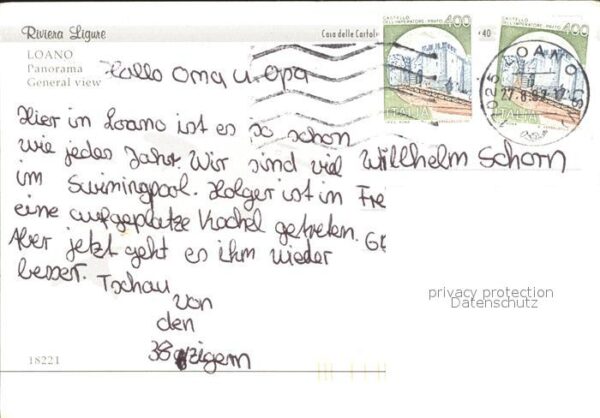 Riviera Ligure
Casa delle Cartol
40
LOANO
Panorama
General view
Hallo Oma u. Opa
CASTELLO DELL'IMPERATORE PRATO 400
ITALIA
CASTELLO DELL'IMPERATORE PRATO 400
ITALIA
17025 LOANO (SV)
Hier in Loano ist es so schön
wie jedes Jahr. Wir sind viel
Willhelm Schorn
im Swimingpool. Holger ist in Fre
eine aufgeplatze Kachel getreten. Gl
Aber jetzt geht es ihm wieder
besser. Tschau
von
den
38 zigern
18221
privacy protection
Datenschutz